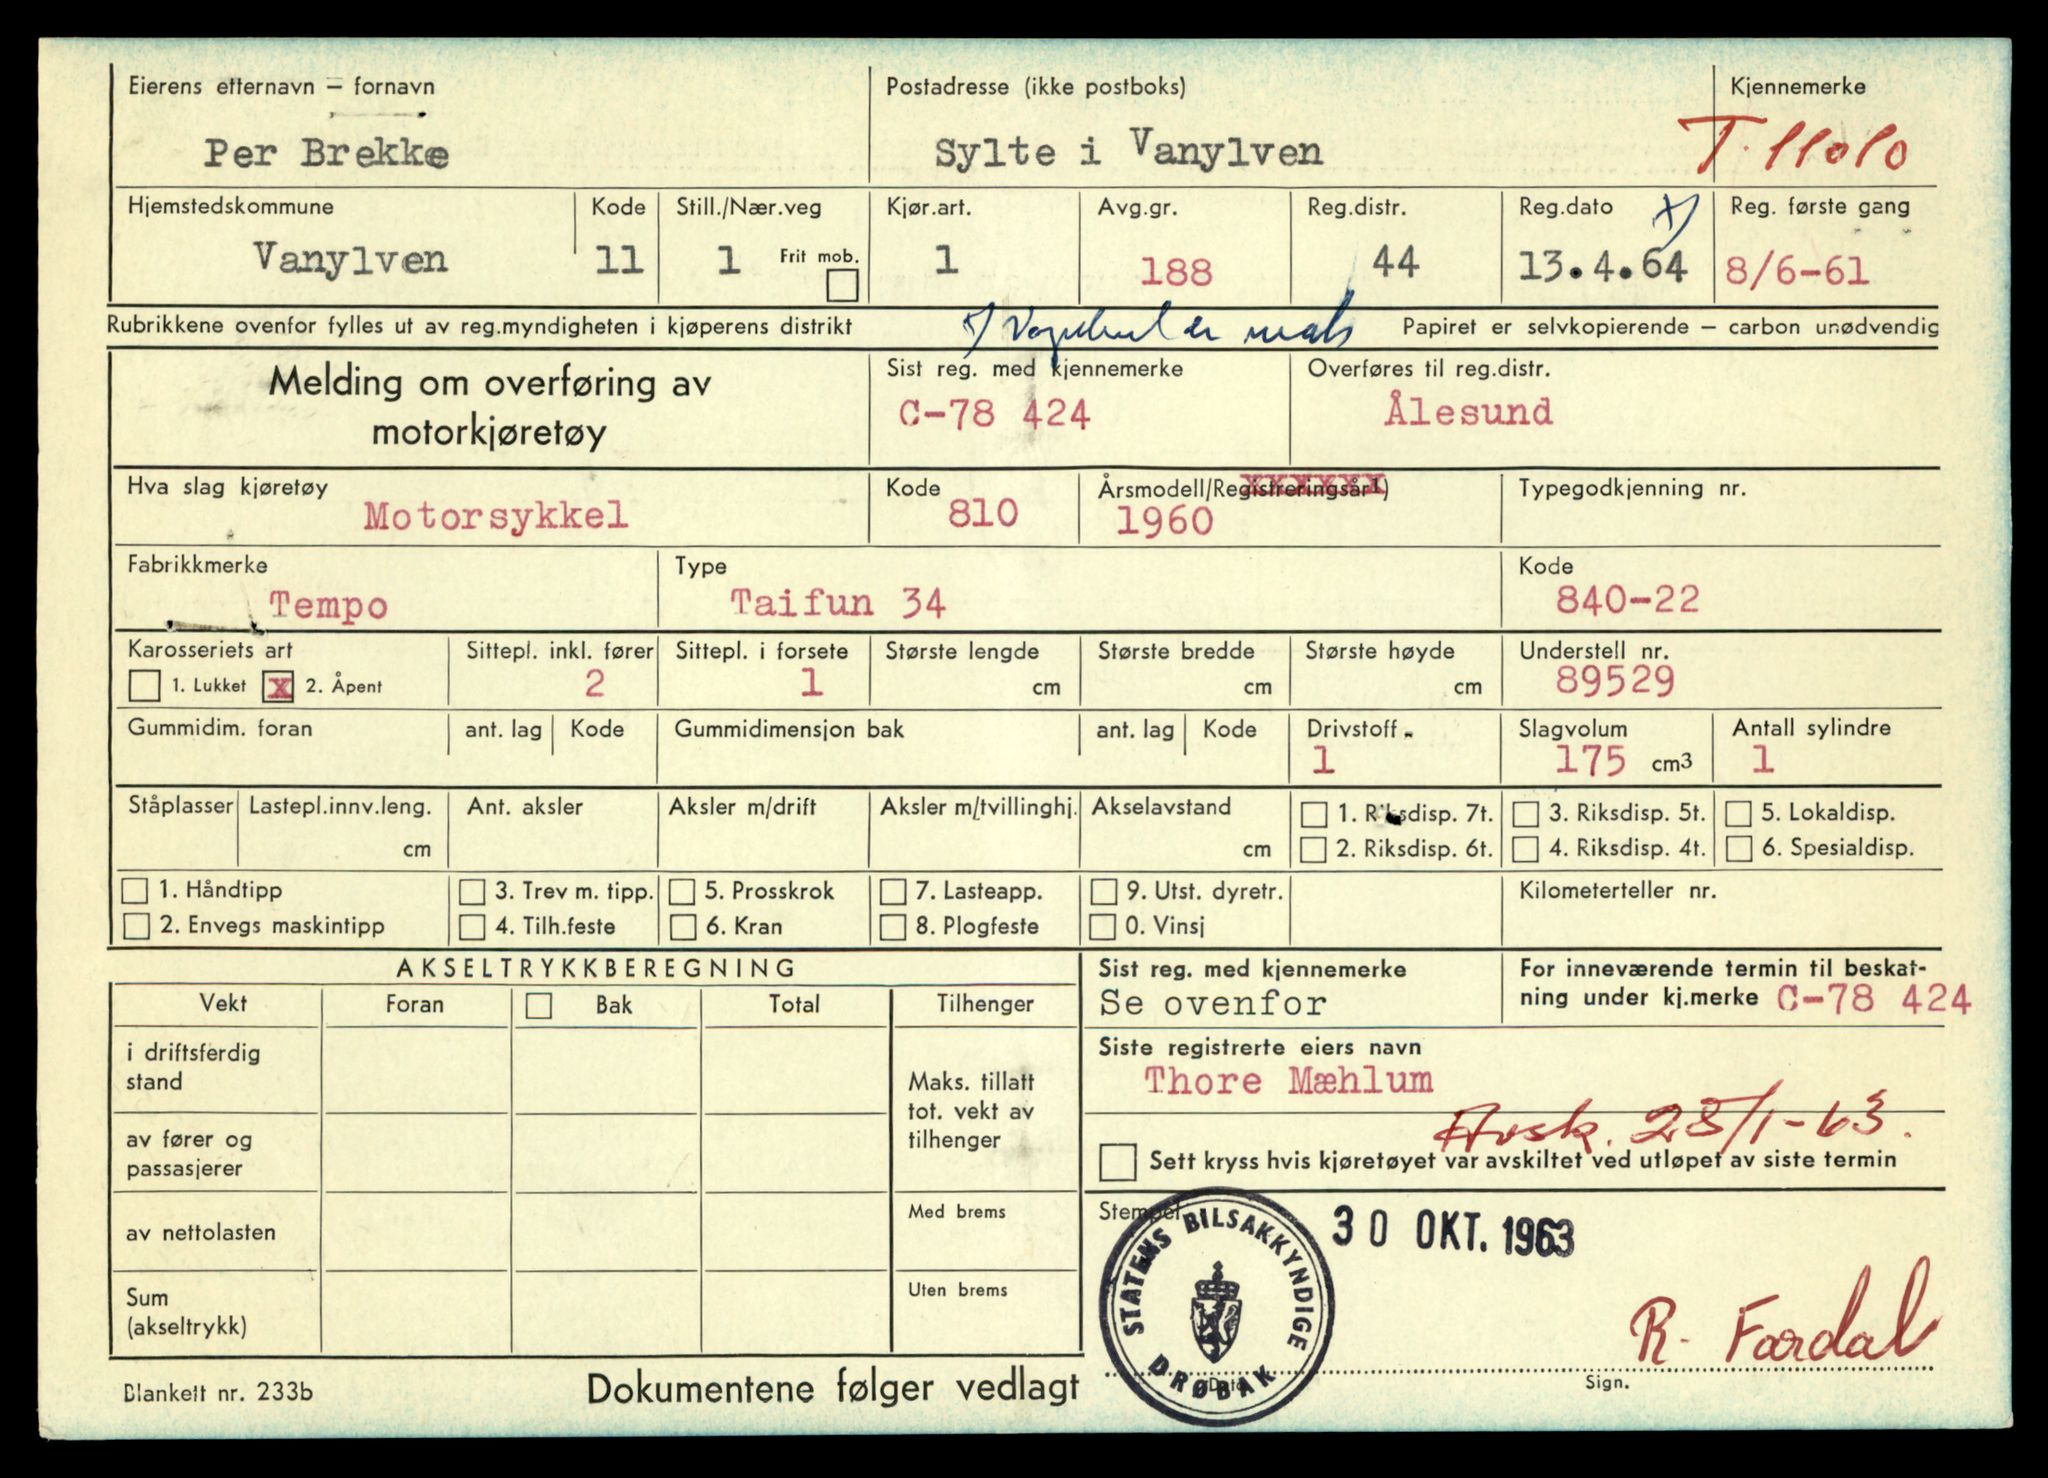 Eierens etternavn – fornavn
Per Brekke
Postadresse (ikke postboks)
Sylte i Vanylven
Kjennemerke
T. 11010
Hjemstedskommune
Vanylven
Kode
11
Still./Nær.veg
1
Frit mob.
Kjør.art.
1
Avg.gr.
188
Reg.distr.
44
Reg.dato
x)
13.4.64
Reg. første gang
8/6-61
Rubrikkene ovenfor fylles ut av reg.myndigheten i kjøperens distrikt
Papiret er selvkopierende – carbon unødvendig
Melding om overføring av
motorkjøretøy
Sist reg. med kjennemerke
C-78 424
Overføres til reg.distr.
Ålesund
Hva slag kjøretøy
Motorsykkel
Kode
810
Årsmodell/Registreringsår1)
1960
Typegodkjenning nr.
Fabrikkmerke
Tempo
Type
Taifun 34
Kode
840-22
Karosseriets art
1. Lukket x 2. Åpent
Sittepl. inkl. fører
2
Sittepl. i forsete
1
Største lengde
cm
Største bredde
cm
Største høyde
cm
Understell nr.
89529
Gummidim. foran
ant. lag
Kode
Gummidimensjon bak
ant. lag
Kode
Drivstoff
1
Slagvolum
175 cm3
Antall sylindre
1
Ståplasser
Lastepl.innv.leng.
cm
Ant. aksler
Aksler m/drift
Aksler m/tvillinghj.
Akselavstand
cm
1. Riksdisp. 7t.
2. Riksdisp. 6t.
3. Riksdisp. 5t.
4. Riksdisp. 4t.
5. Lokaldisp.
6. Spesialdisp.
1. Håndtipp
2. Envegs maskintipp
3. Trev m. tipp.
4. Tilh.feste
5. Prosskrok
6. Kran
7. Lasteapp.
8. Plogfeste
9. Utst. dyretr.
0. Vinsj
Kilometerteller nr.
AKSELTRYKKBEREGNING
Vekt
Foran
Bak
Total
Tilhenger
i driftsferdig
stand
av fører og
passasjerer
av nettolasten
Sum
(akseltrykk)
Maks. tillatt
tot. vekt av
tilhenger
Med brems
Uten brems
Sist reg. med kjennemerke
Se ovenfor
For inneværende termin til beskat-
ning under kj.merke C-78 424
Siste registrerte eiers navn
Thore Mæhlum
Avsk. 28/1-63.
Sett kryss hvis kjøretøyet var avskiltet ved utløpet av siste termin
Stempel
STATENS BILSAKKYNDIGE
DRØBAK
30 OKT. 1963
R. Fardal
Dato
Sign.
Blankett nr. 233b
Dokumentene følger vedlagt